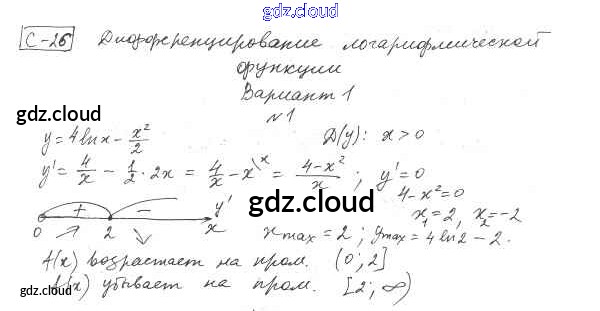 gdz.cloud
С-26 Дифференцирование логарифмической
функции
Вариант 1
gdz.cloud
№1
y = 4lnx - x²/2 D(y): x > 0
y' = 4/x - 1/2 · 2x = 4/x - x\ˣ = (4-x²)/x ; y' = 0
4-x²=0
gdz.cloud
+ - y'
x₁ = 2, x₂ = -2
0 2 x
xmax = 2 ; ymax = 4ln2 - 2.
f(x) возрастает на пром. (0; 2]
f(x) убывает на пром. [2; ∞)
gdz.cloud